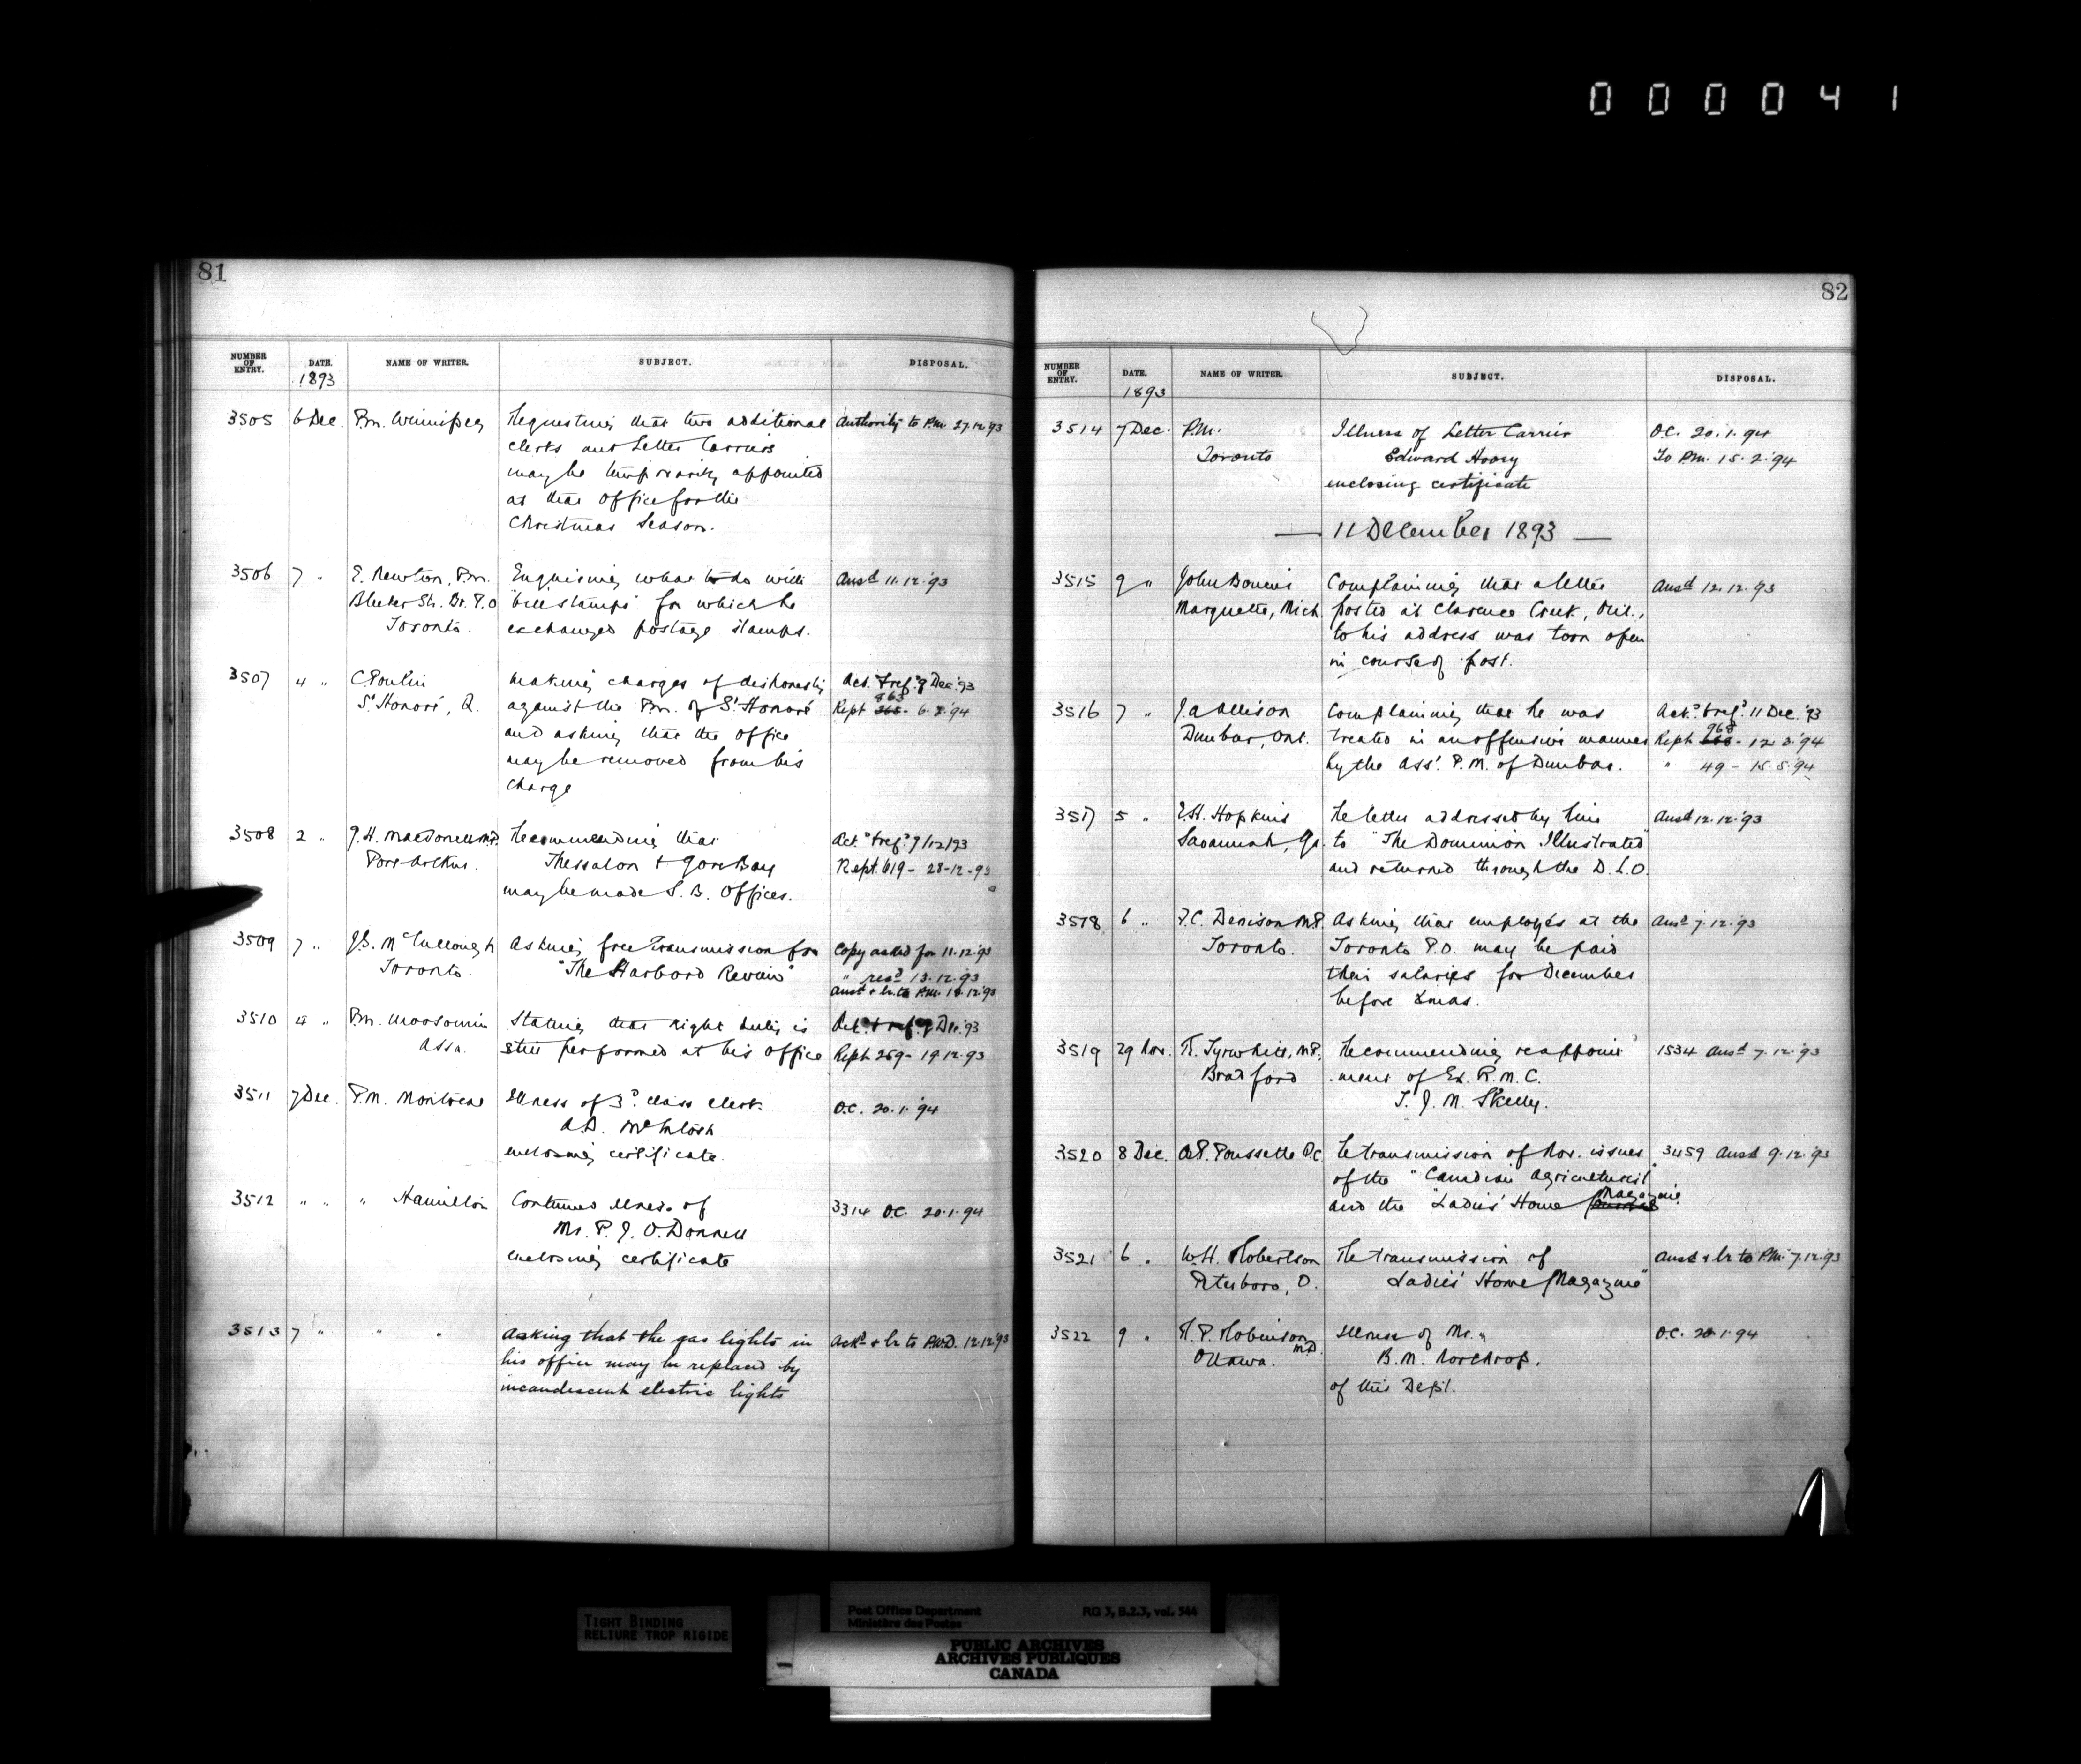 000041
81
NUMBER OF ENTRY. DATE. NAME OF WRITER. SUBJECT. DISPOSAL.
1893
3505 6 Dec. P.M. Winnipeg Requesting that two additional Authority to P.M. 27.12.93
clerks and Letter Carriers
may be temporarily appointed
at that office for the
Christmas Season.
3506 7 " E. Newton, P.M. Enquiring what to do with Ansd 11.12.'93
Bleeker St. Br. P.O "bill stamps" for which he
Toronto. exchanged postage stamps.
3507 4 " C. Poulin making charges of dishonesty Ack. & ref. 9 Dec. '93
St Honoré, Q. against the P.M. of St Honoré Rept 6. 2. '94
and asking that the office
may be removed from his
charge
3508 2 " J.H. Macdonell M.P. Recommending that Ack. & ref. 9/12/93
Port Arthur. Thessalon & Gore Bay Rept. 619 - 28-12-93
may be made S.B. Offices.
3509 7 " J.S. McCullough Asking free transmission for Copy asked for 11.12.93
Toronto. "The Harbord Review" " recd 13.12.93
ansd & lr. to P.M. 12.'93
3510 4 " P.M. Moosomin Stating that night duty is Ack. & ref. 9 Dec. '93
Assa. still performed at his office Rept 269 - 19.12.93
3511 7 Dec. P.M. Montreal Illness of 3d class clerk. O.C. 20.1.'94
A.D. McIntosh
enclosing certificate.
3512 " " " Hamilton Continued illness of 3314 O.C. 20.1.94
Mr. P. J. O'Donnell
enclosing certificate
3513 7 " " " Asking that the gas lights in Ackd & lr to P.W.D. 12.12.93
his office may be replaced by
incandescent electric lights
82
NUMBER OF ENTRY. DATE. NAME OF WRITER. SUBJECT. DISPOSAL.
1893
3514 7 Dec. P.M. Illness of Letter Carrier O.C. 20.1.94
Toronto Edward Hoary To P.M. 15.2.'94
enclosing certificate
— 11 December 1893 —
3515 9 " John Complaining that a letter Ansd 12.12.'93
Marquette, Mich. posted at Clarence Creek, Ont.,
to his address was torn open
in course of post.
3516 7 " J. A. Allison Complaining that he was Ack. & ref. 11 Dec. '93
Dunbar, Ont. treated in an offensive manner Rept 968 - 12.3.'94
by the Asst. P.M. of Dunbar. " 49 - 15.5.'94
3517 5 " E.H. Hopkins Re letter addressed by him Ansd 12.12.'93
Savannah, Ga. to "The Dominion Illustrated"
and returned through the D.L.O.
3518 6 " F.C. Denison M.P. Asking that employés at the Ansd 7.12.'93
Toronto. Toronto P.O. may be paid
their salaries for December
before Xmas.
3519 29 Nov. R. Tyrwhitt, M.P. Recommending reappoint 1534 Ansd 7.12.'93
Bradford -ment of Ex. R.M.C.
T. J. M. Skelly.
3520 8 Dec. A.P. Poussette Q.C. Re transmission of Nov. issues 3459 Ansd 9.12.93
of the "Canadian Agriculturist"
and the "Ladies' Home Magazine
3521 6 " W.H. Robertson Re transmission of Ansd & lr to P.M. 7.12.'93
Peterboro, O. Ladies' Home Magazine"
3522 9 " H.P. Robinson M.D. Illness of Mr. O.C. 20.1.94
Ottawa. B.M. Northrop.
of this Dept.
TIGHT BINDING
RELIURE TROP RIGIDE
Post Office Department RG 3, B.2.3, vol. 544
Ministère des Postes
PUBLIC ARCHIVES
ARCHIVES PUBLIQUES
CANADA